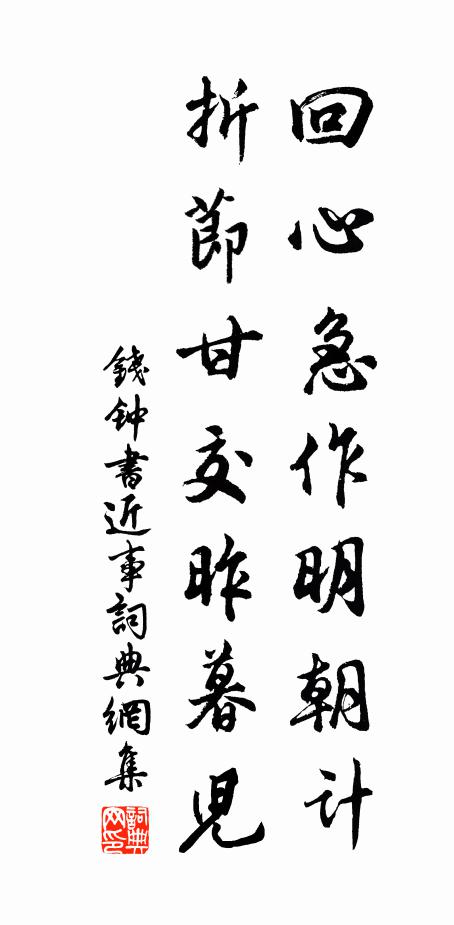 回心急作明朝计
折節甘交昨暮児
錢钟書近事詞典網集
詞典网印